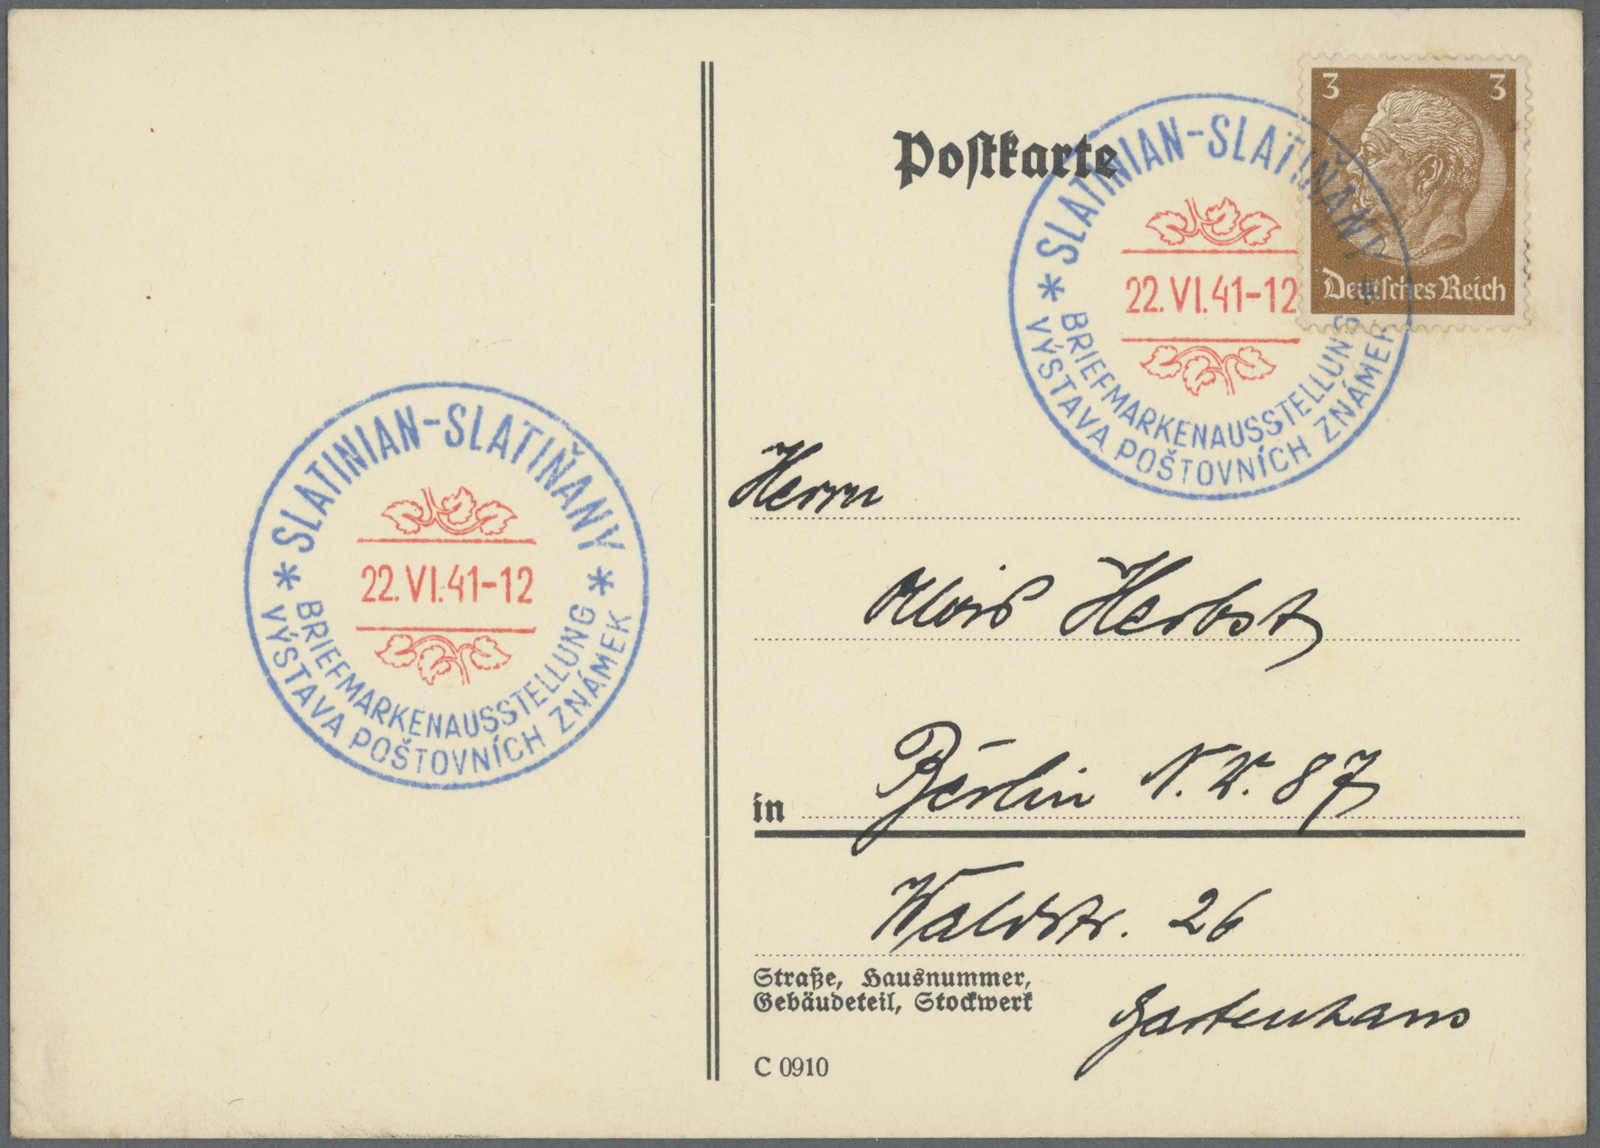 3 3
Deutsches Reich
Postkarte
* SLATINIAN-SLATIŇANY *
22.VI.41-12
BRIEFMARKENAUSSTELLUNG
VÝSTAVA POŠTOVNÍCH ZNÁMEK
* SLATINIAN-SLATIŇANY *
22.VI.41-12
BRIEFMARKENAUSSTELLUNG
VÝSTAVA POŠTOVNÍCH ZNÁMEK
Herrn
Alois Herbst
in Berlin N.W. 87
Waldstr. 26
Straße, Hausnummer,
Gebäudeteil, Stockwerk
Gartenhaus
C 0910